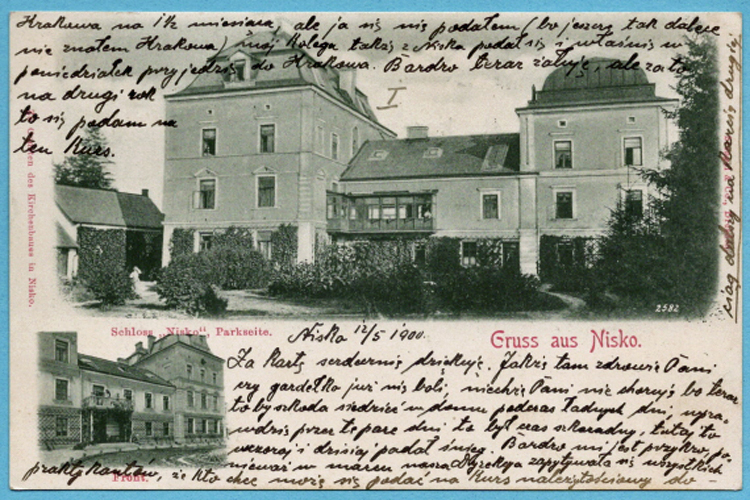 Krakowa na 1½ miesiąca, ale ja się nie podałem (bo jeszcze tak dalece
nie znałem Krakowa) mój Kolega także z Niska podał się i właśnie w
poniedziałek przyjedzie do Krakowa. Bardzo teraz żałuję, ale za to
na drugi rok
to się podam na
ten Kurs.
I
des Kirchenbaues in Nisko.
ciąg dalszy na karcie drugiej
2582
Schloss „Nisko", Parkseite.
Nisko 12/5 1900.
Gruss aus Nisko.
Za kartę serdecznie dziękuję. Jakże tam zdrowie Pani
czy gardełko już nie boli, niechże Pani nie choruje bo teraz
to by szkoda siedzieć w domu podczas ładnych dni, wpra-
wdzie przez te parę dni to był czas szkaradny, tutaj to
wczoraj i dzisiaj padał śnieg. Bardzo mi jest przykro, po-
nieważ w marcu nasza Dyrekcya zapytywała się wszystkich
praktykantów, że kto chce może się podać na Kurs należytościowy do
Front.